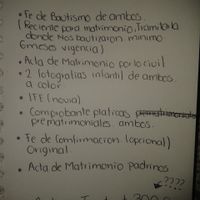 • Fe de Bautismo de ambos.
(Reciente para matrimonio, Tramitarla
donde nos bautizaron minimo
6 meses vigencia)
• Acta de Matrimonio por lo civil
• 2 fotografias infantil de ambos
a color
• IFE (novia)
• Comprobante platicas
prematrimoniales ambos.
• Fe de Confirmacion (opcional)
Original
• Acta de Matrimonio Padrinos
????